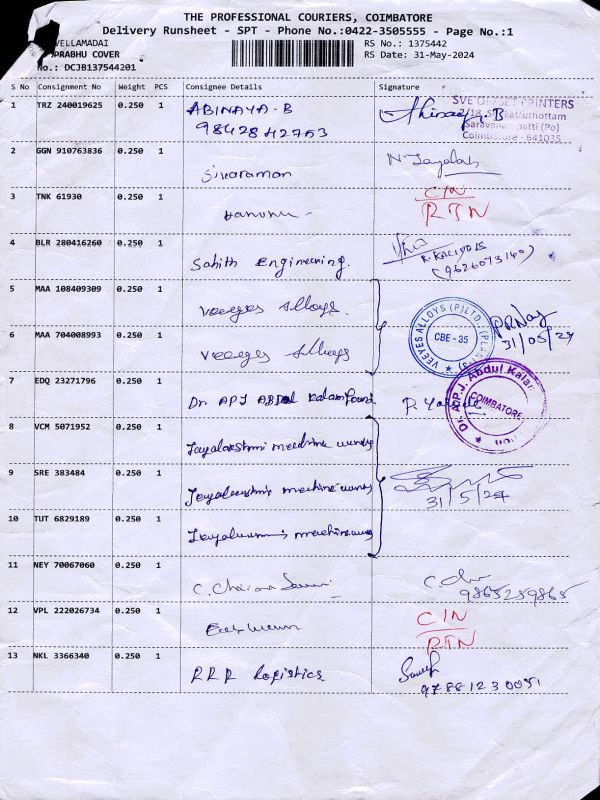 THE PROFESSIONAL COURIERS, COIMBATORE
Delivery Runsheet - SPT - Phone No.:0422-3505555 - Page No.:1
VELLAMADAI
PRABHU COVER
No.: DCJB137544201
RS No.: 1375442
RS Date: 31-May-2024
S No Consignment No Weight PCS Consignee Details Signature
1 TRZ 240019625 0.250 1 ABINAYA-B
9842842753
SVE OFFSET PRINTERS
Coimbatore - 641035
2 GGN 910763836 0.250 1 Sivaraman
3 TNK 61930 0.250 1
CIN
RTN
4 BLR 280416260 0.250 1 Sahith Engineering.
(9626073140)
5 MAA 108409309 0.250 1 Veeyes Alloys.
6 MAA 704008993 0.250 1 Veeyes Alloys
VEEYES ALLOYS (P) LTD
CBE - 35
31/05/24
7 EDQ 23271796 0.250 1 Dr. APJ Abdul Kalam
Dr. A.P.J. Abdul Kalam
COIMBATORE
8 VCM 5071952 0.250 1 Jayalakshmi machine
9 SRE 383484 0.250 1 Jayalakshmi machine
31/5/24
10 TUT 6829189 0.250 1 machine
11 NEY 70067060 0.250 1
9865259865
12 VPL 222026734 0.250 1
CIN
RTN
13 NKL 3366340 0.250 1 RRR Logistics
9788123005